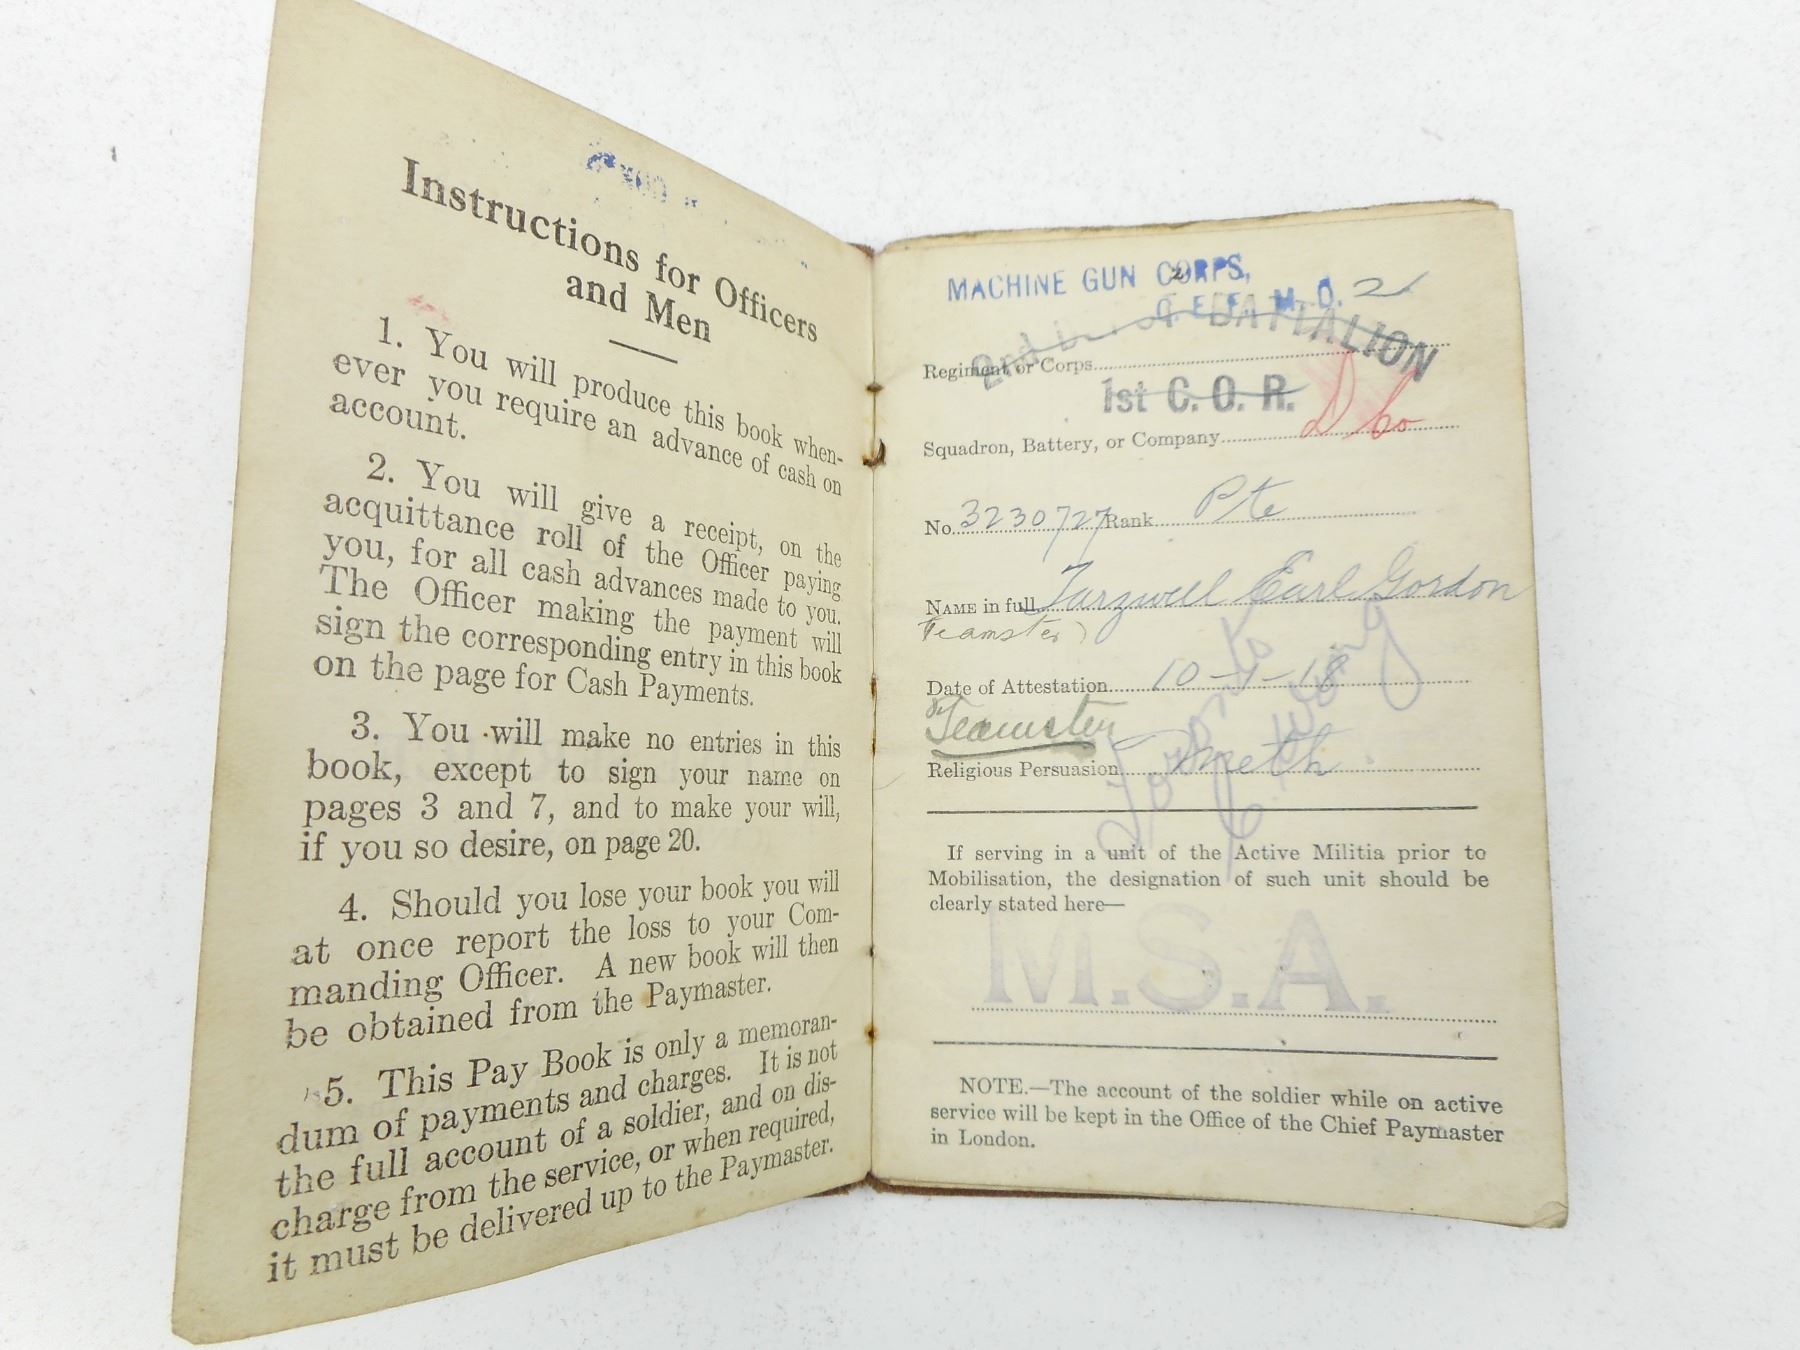 Instructions for Officers
and Men
1. You will produce this book when-
ever you require an advance of cash on
account.
2. You will give a receipt, on the
acquittance roll of the Officer paying
you, for all cash advances made to you.
The Officer making the payment will
sign the corresponding entry in this book
on the page for Cash Payments.
3. You will make no entries in this
book, except to sign your name on
pages 3 and 7, and to make your will,
if you so desire, on page 20.
4. Should you lose your book you will
at once report the loss to your Com-
manding Officer. A new book will then
be obtained from the Paymaster.
5. This Pay Book is only a memoran-
dum of payments and charges. It is not
the full account of a soldier, and on dis-
charge from the service, or when required,
it must be delivered up to the Paymaster.
MACHINE GUN CORPS,
C.E.F. M. D. 2
2nd BATTALION
Regiment or Corps
1st C. O. R.
Squadron, Battery, or Company D Co
No. 3230727 Rank Pte
NAME in full Tarzwell Earl Gordon
Teamster
Date of Attestation 10-1-18
Teamster
Religious Persuasion Meth.
If serving in a unit of the Active Militia prior to
Mobilisation, the designation of such unit should be
clearly stated here—
M.S.A.
NOTE.—The account of the soldier while on active
service will be kept in the Office of the Chief Paymaster
in London.